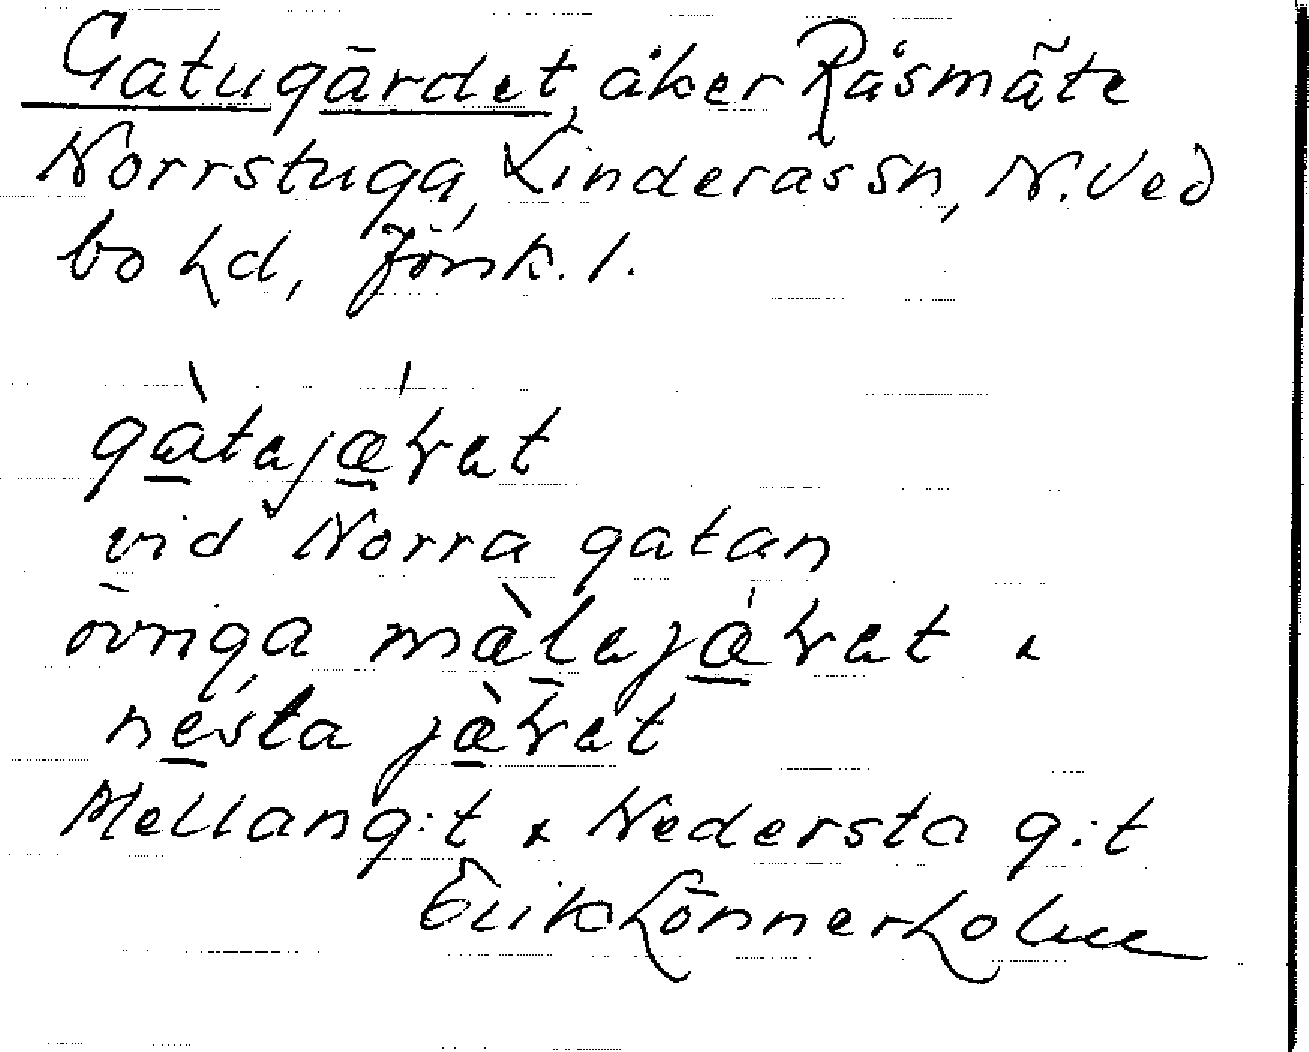 Gatugärdet, åker Råsmåte
Norrstuga, Linderås sn, N. Ved
bo hd, Jönk. l.
gàtajæ̀ɽat
vid Norra gatan
övriga màlajæ̀ɽat &
nésta jæ̀ɽat
Mellang:t & Nedersta g:t
Erik Lönnerholm